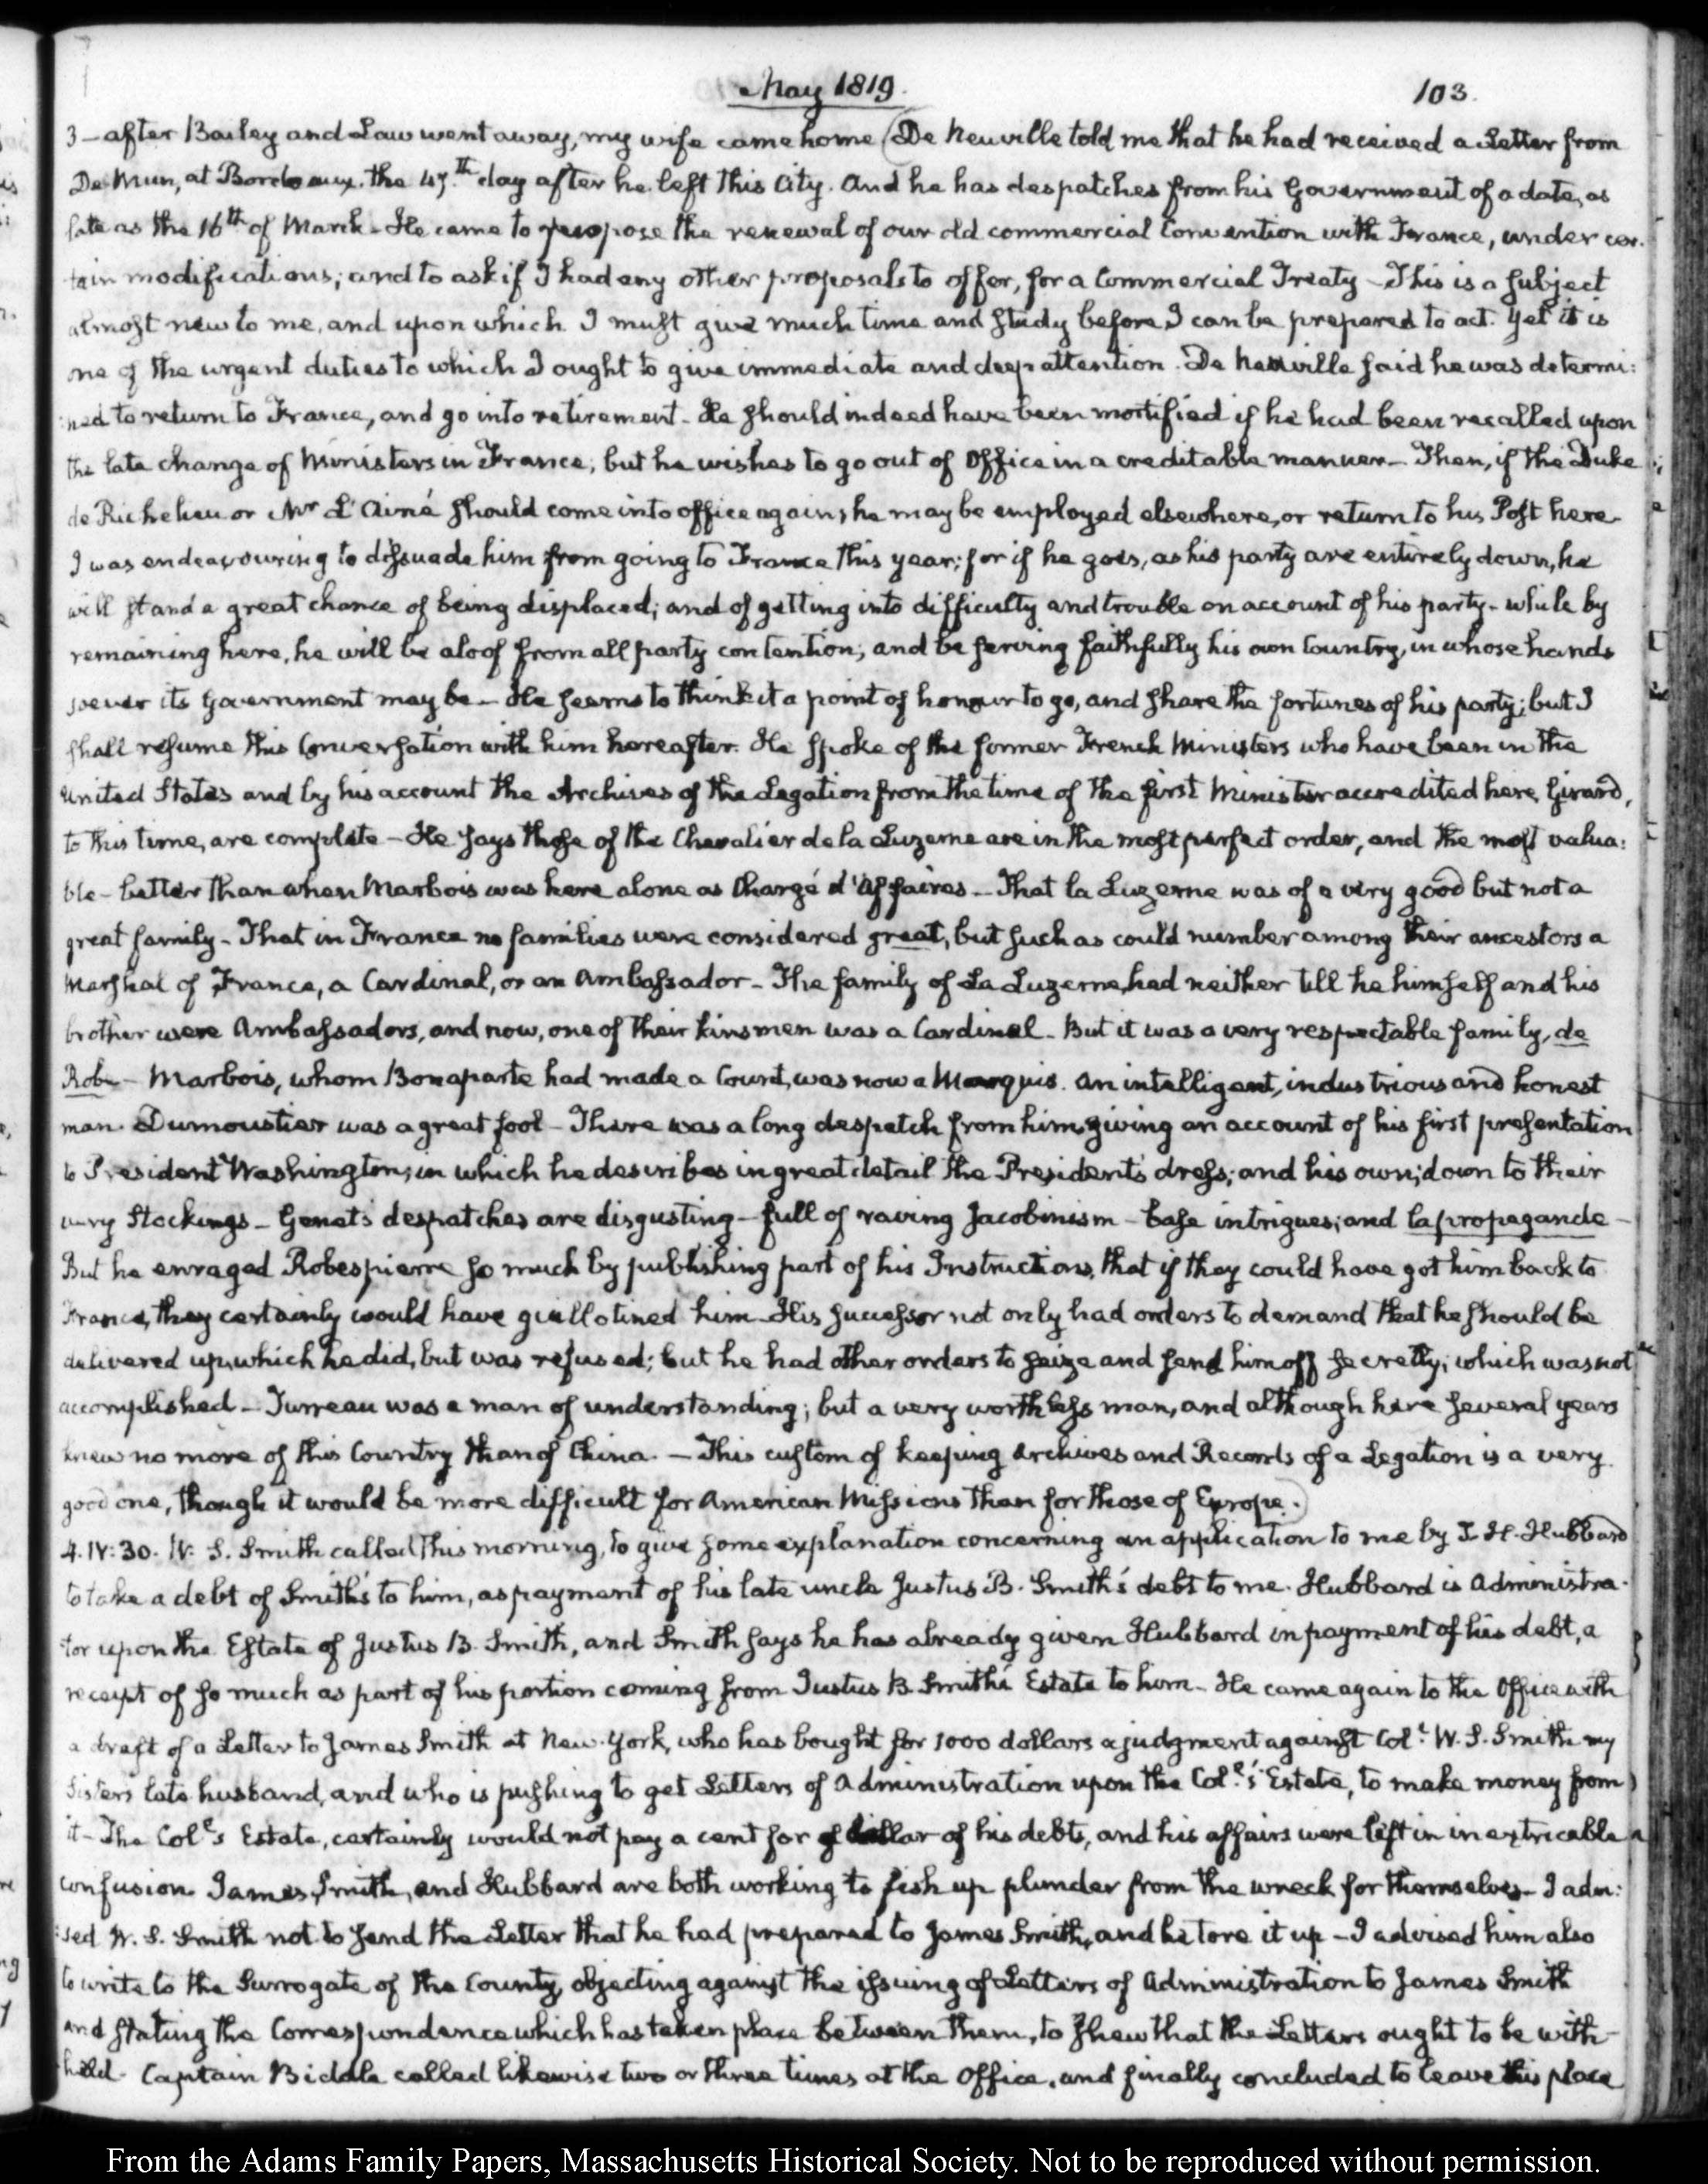 May 1819.
103.
3 – after Bailey and Law went away, my wife came home (De Neuville told me that he had received a Letter from
De Mun, at Bordeaux. the 47.th day after he left this City. And he has despatches from his Government of a date, as
late as the 16th of March – He came to propose the renewal of our old commercial Convention with France, under cer:
:tain modifications; and to ask if I had any other proposals to offer, for a Commercial Treaty – This is a subject
almost new to me, and upon which I must give much time and study before I can be prepared to act. Yet it is
one of the urgent duties to which I ought to give immediate and deep attention. De Neuville said he was determi:
:ned to return to France, and go into retirement – He should indeed have been mortified if he had been recalled upon
the late change of Ministers in France; but he wishes to go out of Office in a creditable manner – Then, if the Duke
de Richelieu or Mr L'Ainé should come into office again, he may be employed elsewhere, or return to his Post here.
I was endeavouring to dissuade him from going to France this year; for if he goes, as his party are entirely down, he
will stand a great chance of being displaced; and of getting into difficulty and trouble on account of his party – while by
remaining here, he will be aloof from all party contention; and be serving faithfully his own Country, in whose hands
soever its Government may be – He seems to think it a point of honour to go, and share the fortunes of his party; but I
shall resume this Conversation with him hereafter. He spoke of the former French Ministers who have been in the
United States and by his account the Archives of the Legation from the time of the first Minister accredited here, Girard,
to this time, are complete – He says those of the Chevalier de la Luzerne are in the most perfect order, and the most valua:
ble – better than when Marbois was here alone as Chargé d'Affaires – That la Luzerne was of a very good but not a
great family – That in France no families were considered great, but such as could number among their ancestors a
Marshal of France, a Cardinal, or an Ambassador – The family of La Luzerne, had neither till he himself and his
brother were Ambassadors, and now, one of their kinsmen was a Cardinal – But it was a very respectable family, de
Robe – Marbois, whom Bonaparte had made a Count, was now a Marquis. An intelligent, industrious and honest
man. Dumoustier was a great fool – There was a long despatch from him, giving an account of his first presentation
to President Washington; in which he describes in great detail the President's dress; and his own; down to their
very Stockings – Genet's despatches are disgusting – full of raving Jacobinism – base intrigues; and la propagande –
But he enraged Robespierre so much by publishing part of his Instructions, that if they could have got him back to
France, they certainly would have guillotined him – His successor not only had orders to demand that he should be
delivered up, which he did, but was refused; but he had other orders to seize and send him off secretly; which was not
accomplished – Turreau was a man of understanding; but a very worthless man, and although here several years
knew no more of this Country than of China. – This custom of keeping Archives and Records of a Legation is a very
good one, though it would be more difficult for American Missions than for those of Europe.)
4. IV:30. W. S. Smith called this morning, to give some explanation concerning an application to me by J. H. Hubbard
to take a debt of Smith's to him, as payment of his late uncle Justus B. Smith's debt to me. Hubbard is Administra:
:tor upon the Estate of Justus B. Smith, and Smith says he has already given Hubbard in payment of his debt, a
receipt of so much as part of his portion coming from Justus B. Smith's Estate to him – He came again to the Office with
a draft of a Letter to James Smith at New-York, who has bought for 1000 dollars a judgment against Col.l W. S. Smith my
Sisters late husband, and who is pushing to get Letters of Administration upon the Col.l's Estate, to make money from
it – The Col.l's Estate, certainly would not pay a cent for dollar of his debts, and his affairs were left in inextricable
confusion. James Smith, and Hubbard are both working to fish up plunder from the wreck for themselves – I advi:
:sed W. S. Smith not to send the Letter that he had prepared to James Smith, and he tore it up – I advised him also
to write to the Surrogate of the County, objecting against the issuing of Letters of Administration to James Smith
and stating the Correspondence which has taken place between them, to shew that the Letters ought to be with-
held. Captain Biddle called likewise two or three times at the Office, and finally concluded to leave this place
From the Adams Family Papers, Massachusetts Historical Society. Not to be reproduced without permission.